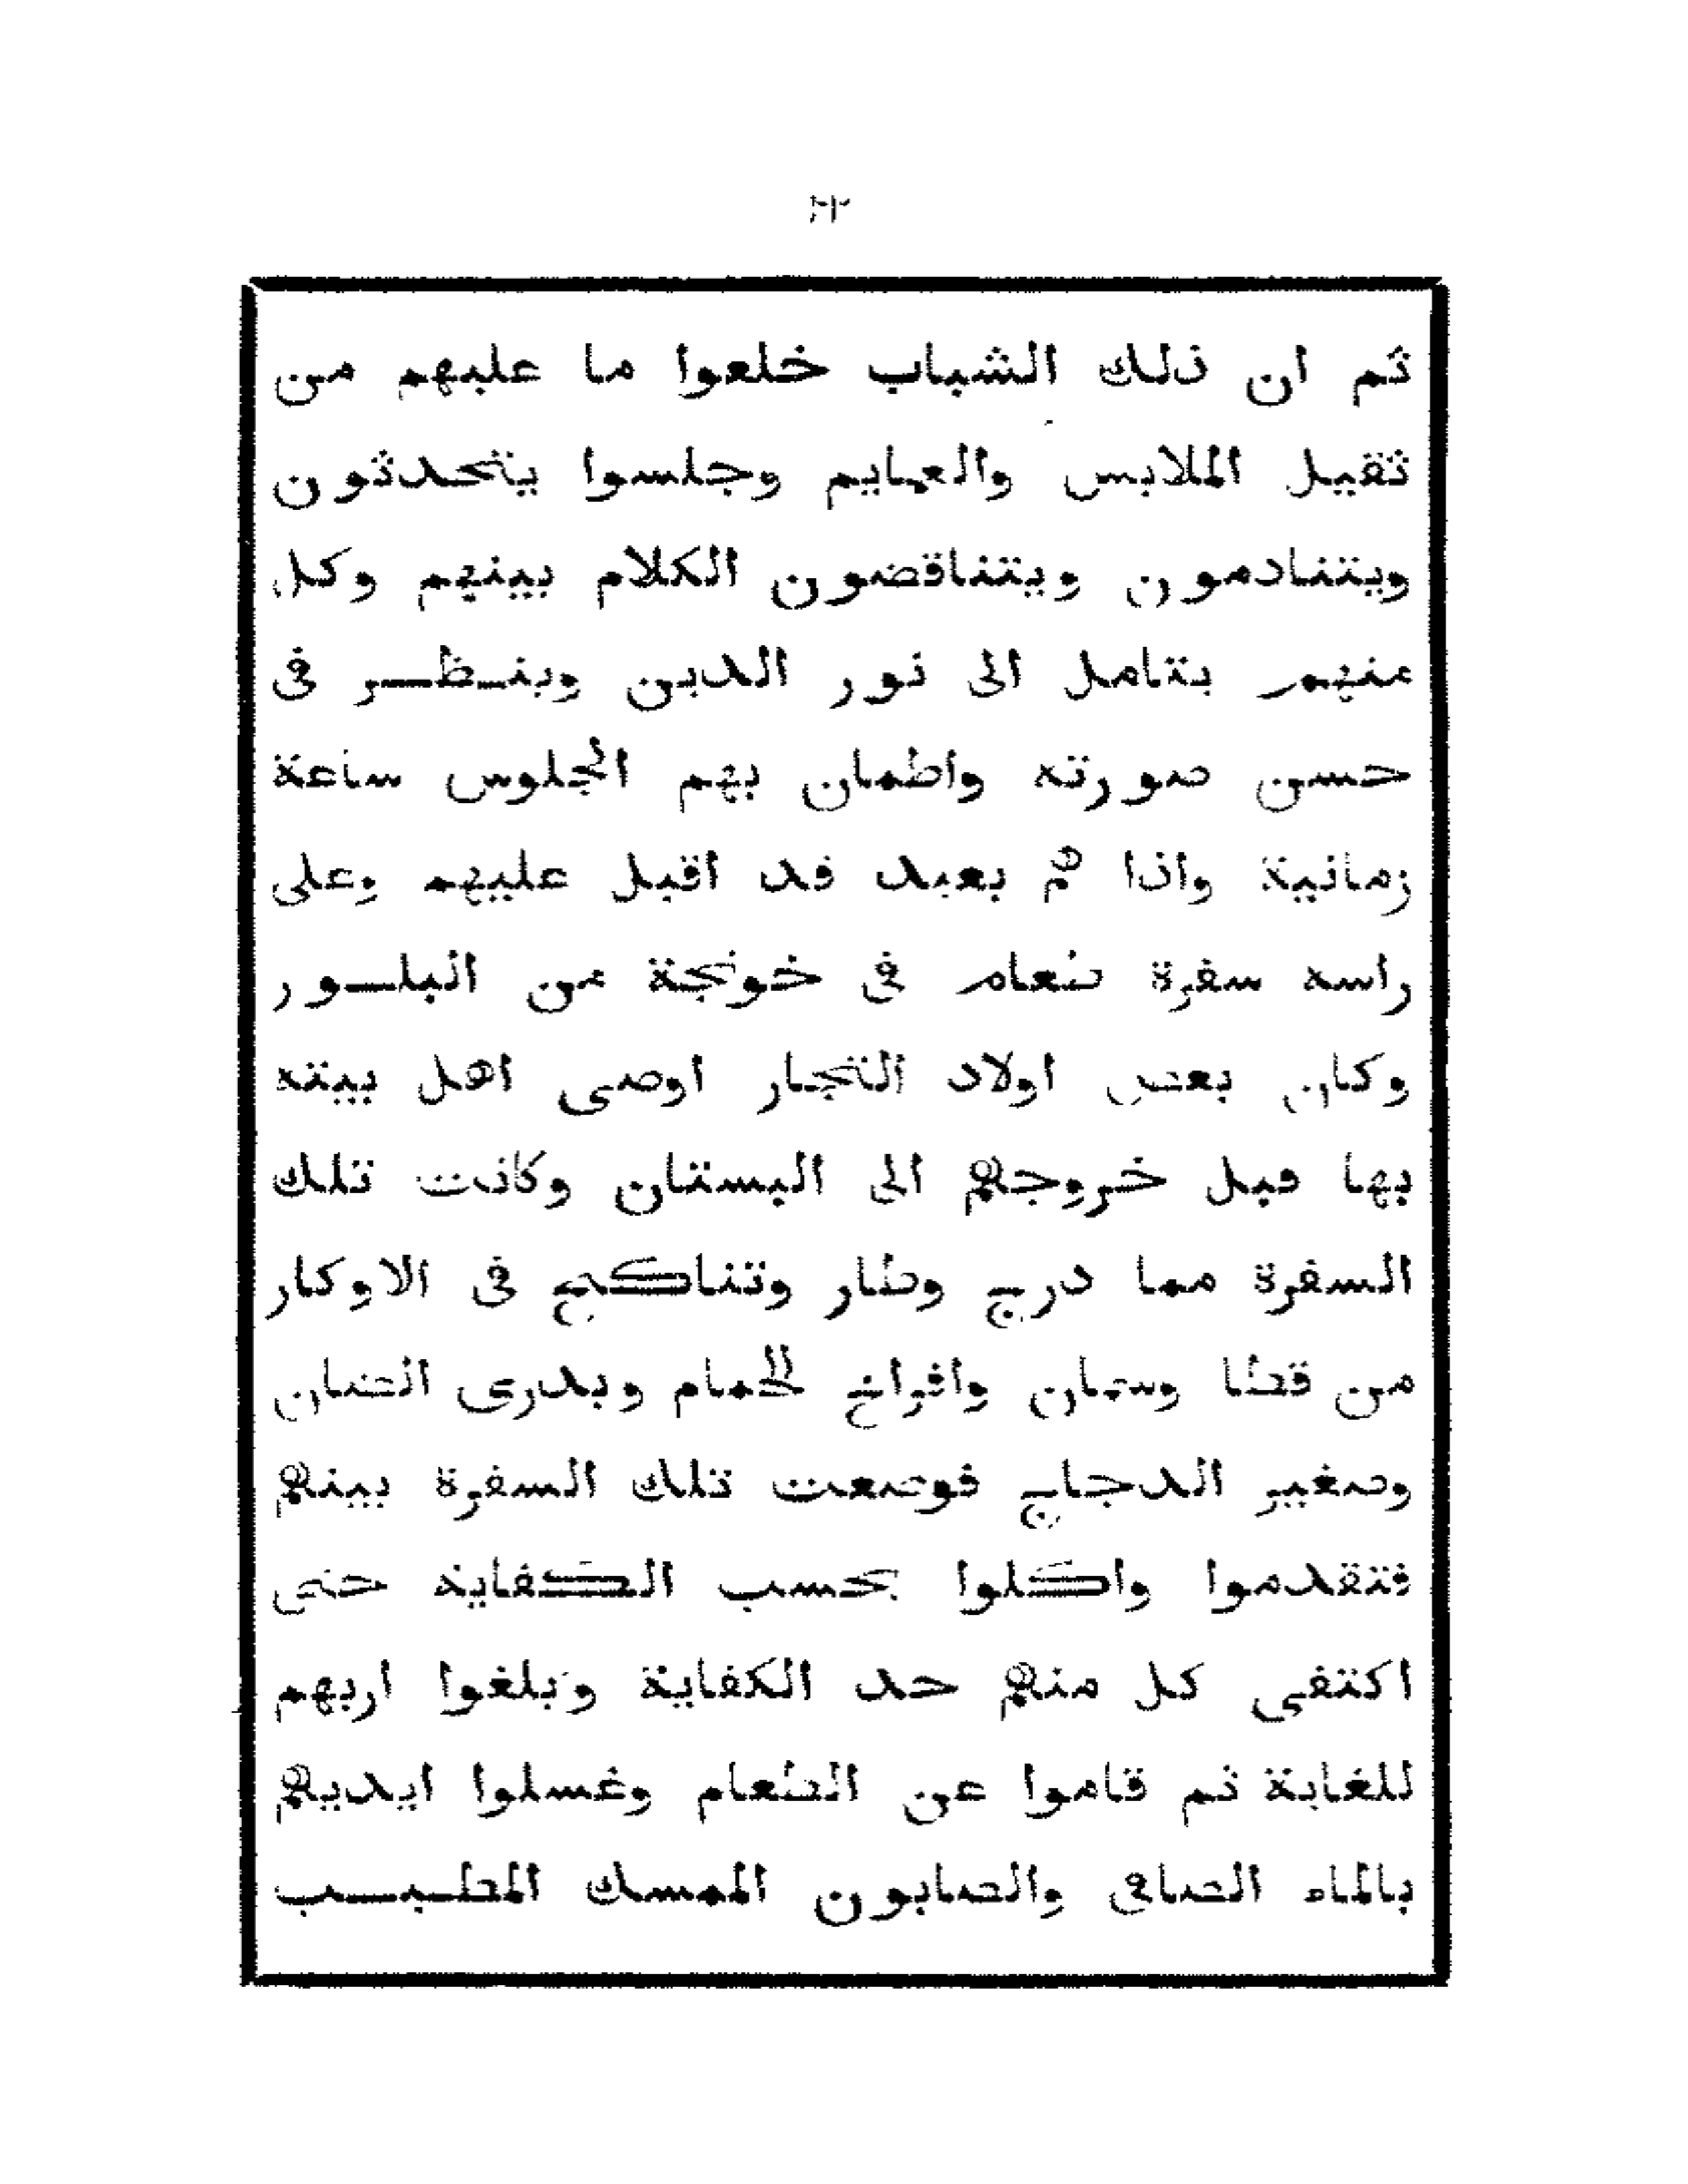 ثم ان ذلك الشباب خلعوا ما عليهم من
ثقيل الملابس والعمايم وجلسوا يتحدثون
ويتنادمون ويتناقضون الكلام بينهم وكل
منهم يتامل الى نور الدين وينظر فى
حسن صورته واطمان بهم الجلوس ساعة
زمانية واذا هم بعبد قد اقبل عليهم وعلى
راسه سفرة طعام فى خونجة من البلور
وكان بعض اولاد التجار اوصى اهل بيته
بها قبل خروجهم الى البستان وكانت تلك
السفرة مما درج وطار وتناكح فى الاوكار
من قطا وسمان وافراخ الحمام وبدرى الضان
وصغير الدجاج فوضعت تلك السفرة بينهم
فتقدموا واكلوا بحسب الكفاية حتى
اكتفى كل منهم حد الكفاية وبلغوا اربهم
للغاية ثم قاموا عن الطعام وغسلوا ايديهم
بالماء الصافى والصابون الممسك المطيب